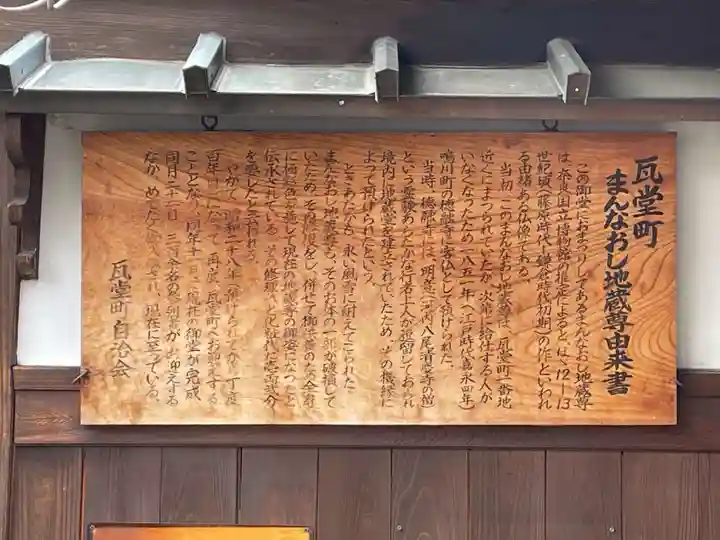 瓦堂町
まんなおし地蔵尊由来書
この御堂におまつりしてあるまんなおし地蔵尊
は、奈良国立博物館の推定によると、12〜13
世紀頃(藤原時代〜鎌倉時代初期)の作といわれ
る由緒ある仏像である。
当初、このまんなおし地蔵尊は、瓦堂町一番地
近くにまつられていたが、次第に給仕する人が
いなくなったため一八五一年(江戸時代嘉永四年)
鳴川町の徳融寺に客仏として預けられた。
当時、徳融寺には、明意(河内八尾清慶寺の僧)
という霊験あらたかな行者上人が逗留しておられ
境内に地蔵堂を建立されていたため、その機縁に
よって預けられたという。
ときあたかも、永い風雪に耐えてこられた
まんなおし地蔵尊も、そのお体の一部が破損して
いたため、その修復をし、併せて御法善のため全身
に極彩色を施して現在の地蔵尊の御姿になったと
伝承されている。その修理のとき
を感じると云われる。
やがて、昭和二十八年、預けられてから丁度
百年目にあたって再度、瓦堂町へお迎えする
こととなり、同年十月に現在の御堂が完成
同月二十三日、三百余名の参列者がお迎えする
なか、めでたく され、現在に至っている。
瓦堂町自治会